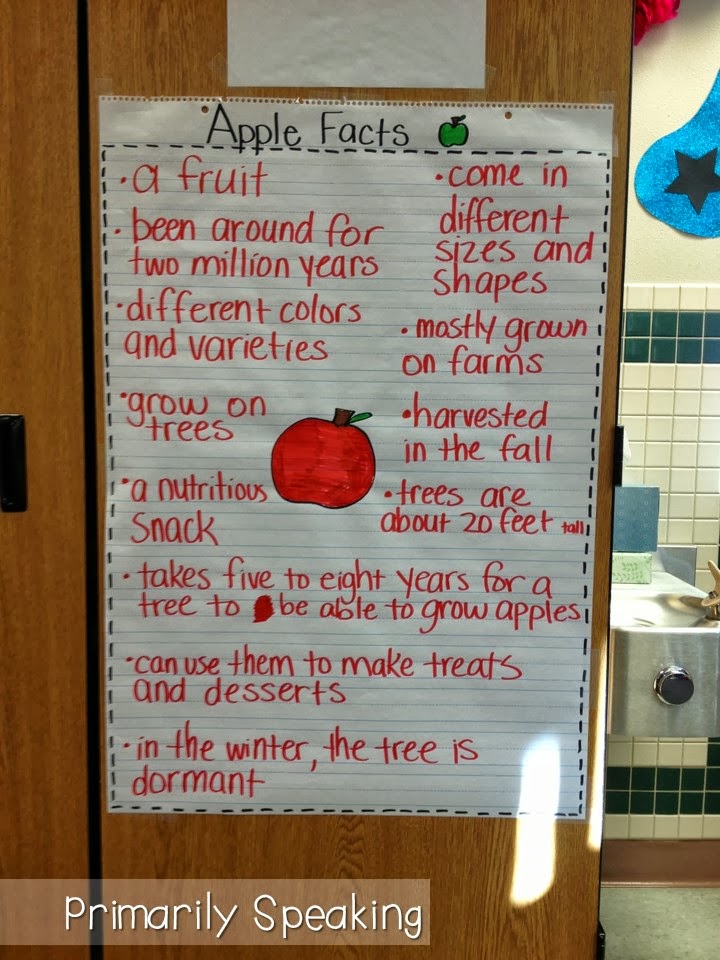 Apple Facts
• a fruit
• been around for
two million years
• different colors
and varieties
• grow on
trees
• a nutritious
snack
• come in
different
sizes and
shapes
• mostly grown
on farms
• harvested
in the fall
• trees are
about 20 feet tall
• takes five to eight years for a
tree to be able to grow apples
• can use them to make treats
and desserts
• in the winter, the tree is
dormant
Primarily Speaking